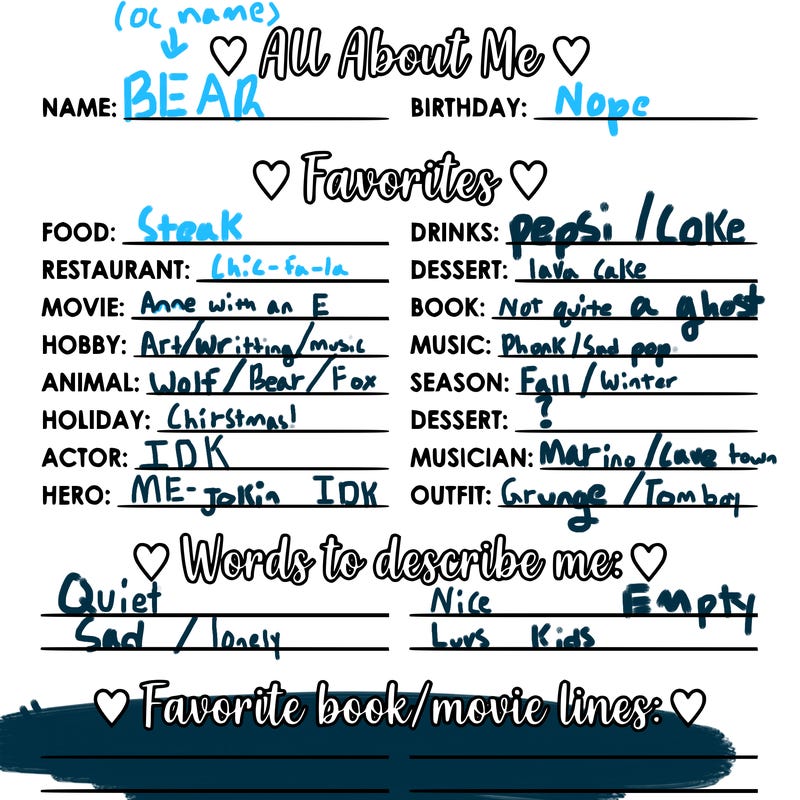 (oc name)
All About Me
NAME: BEAR BIRTHDAY: Nope
Favorites
FOOD: Steak DRINKS: pepsi / Coke
RESTAURANT: Chic-fa-la DESSERT: lava cake
MOVIE: Anne with an E BOOK: Not quite a ghost
HOBBY: Art/Writting/music MUSIC: Phonk/Sad pop
ANIMAL: Wolf/Bear/Fox SEASON: Fall/Winter
HOLIDAY: Chirstmas! DESSERT: ?
ACTOR: IDK MUSICIAN: Marino/Cave town
HERO: ME-Jokin IDK OUTFIT: Grunge/Tomboy
Words to describe me:
Quiet Nice Empty
Sad / lonely Luvs Kids
Favorite book/movie lines: